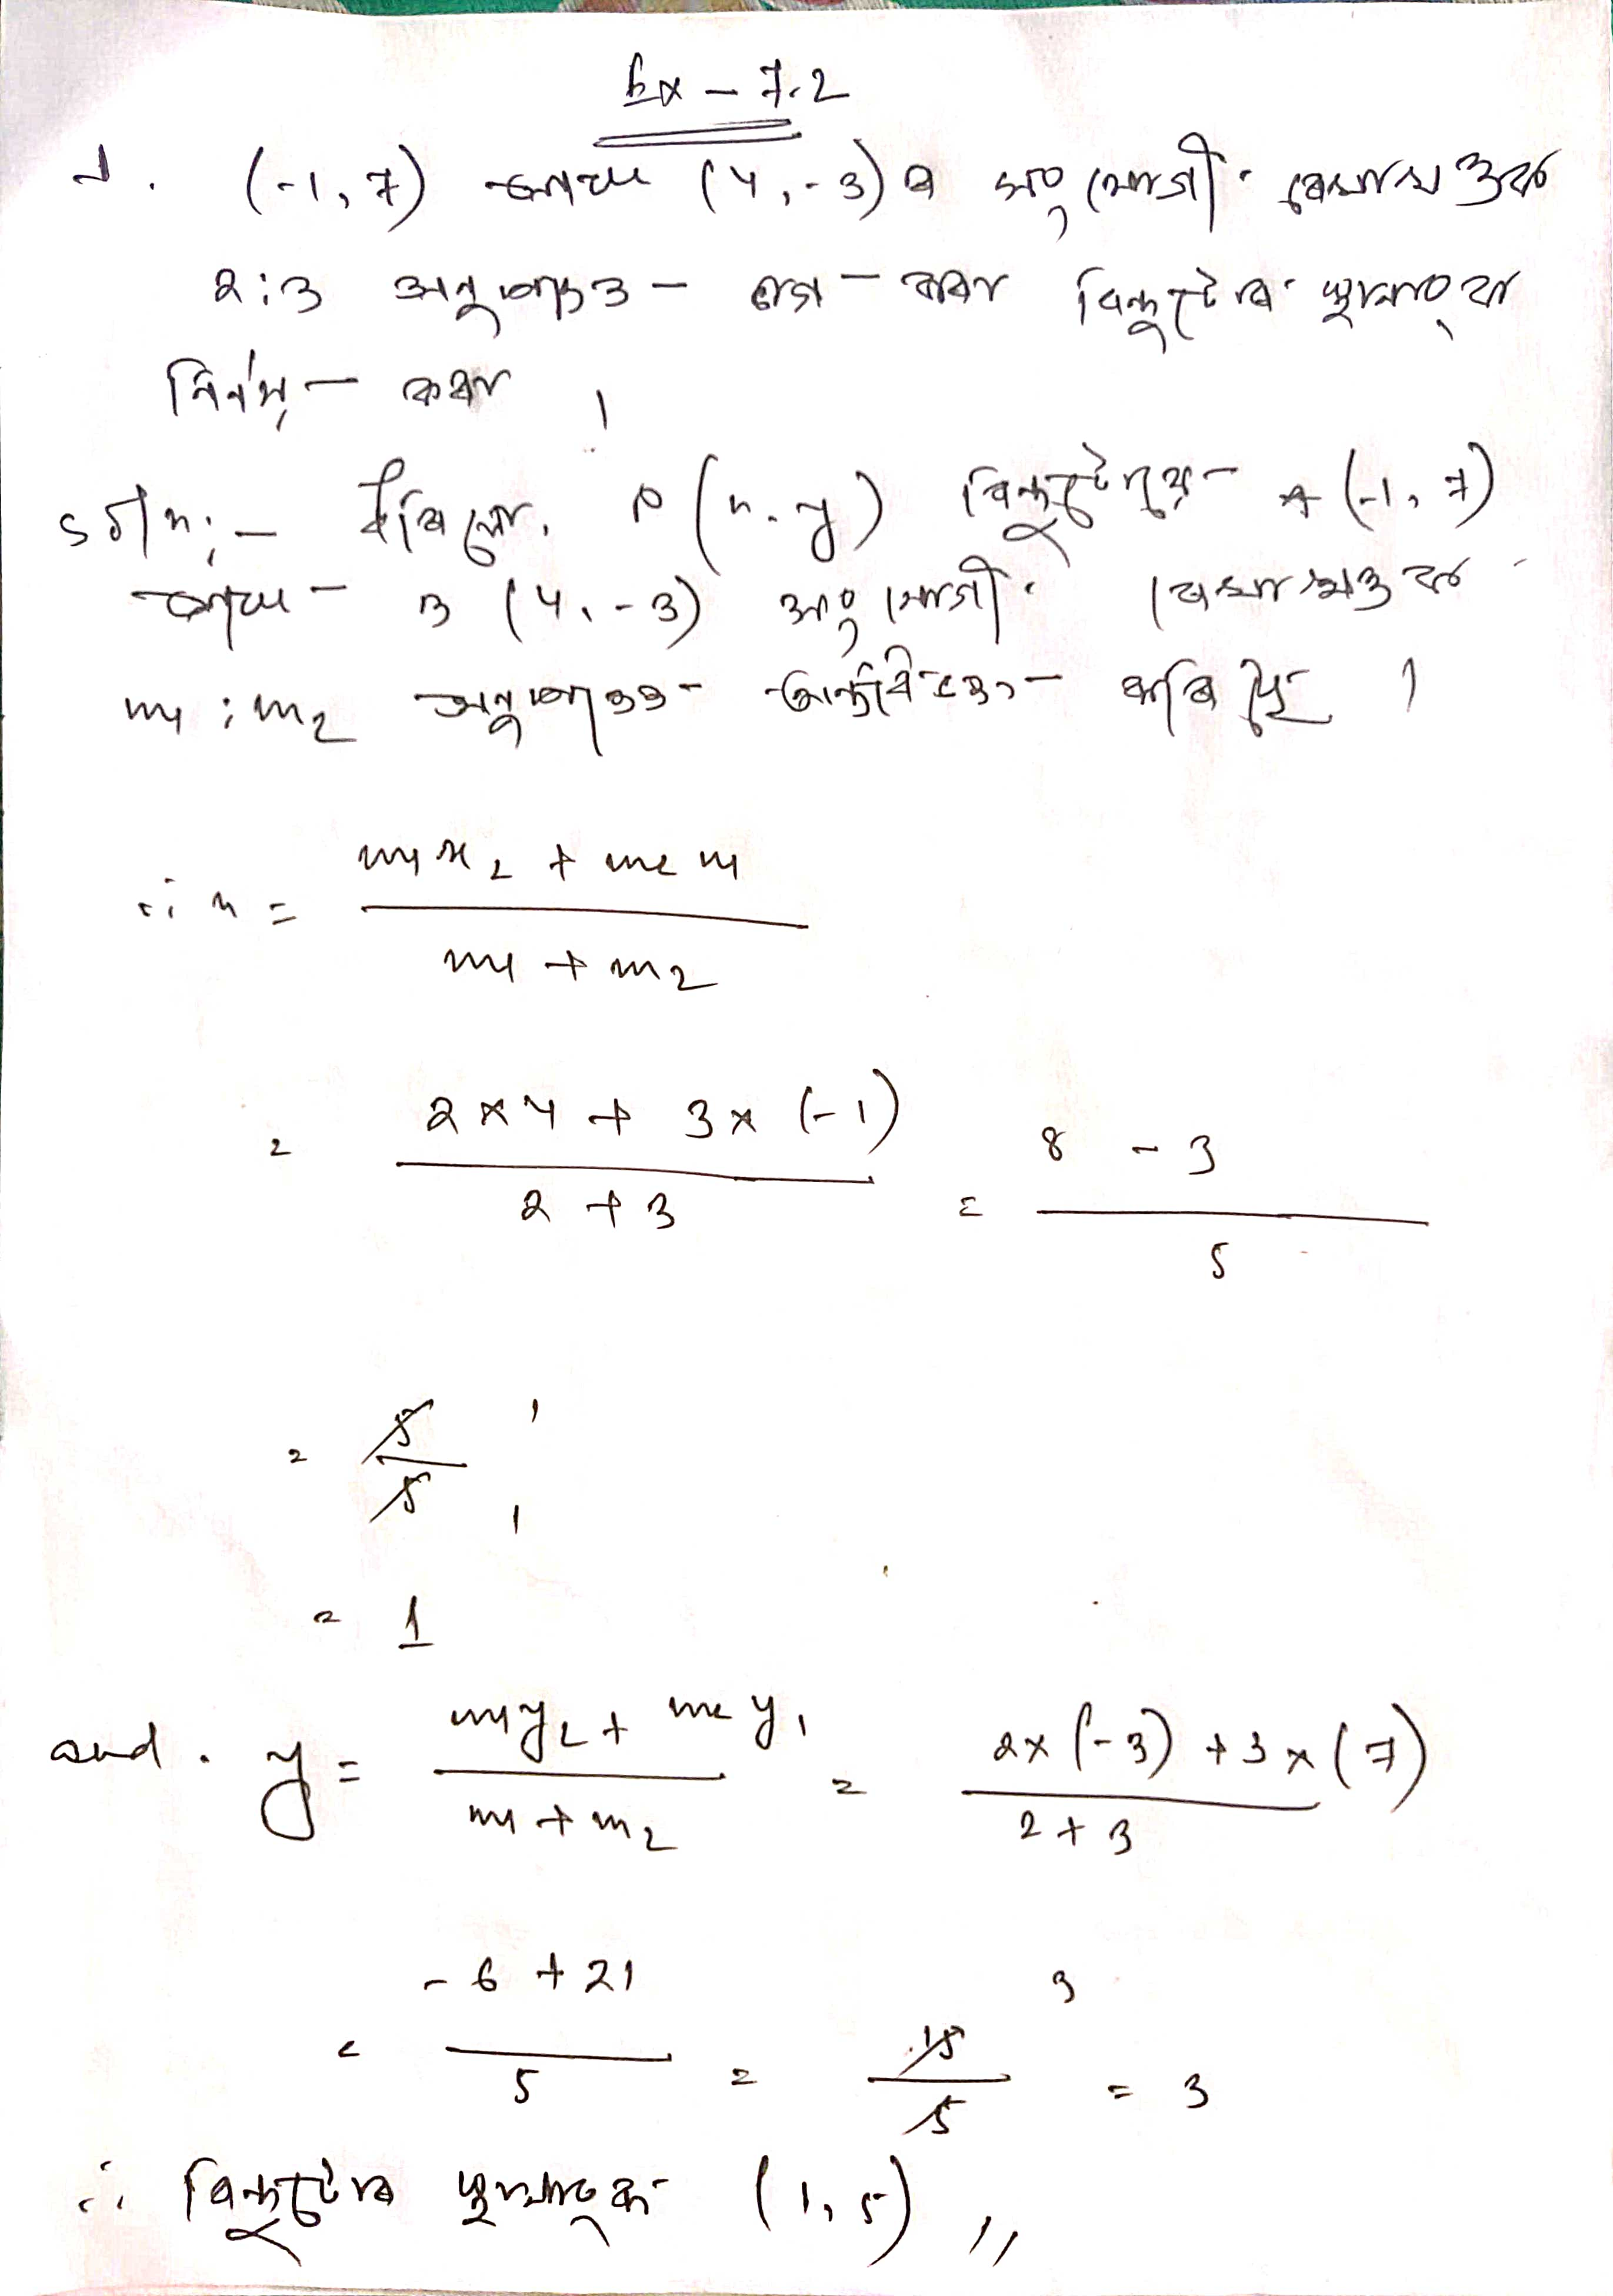 Ex - 7.2
১. (-1, 7) আৰু (4, -3) ৰ সংযোগী ৰেখাখণ্ডক
2:3 অনুপাতত - ভাগ - কৰা বিন্দুটোৰ স্থানাংক
নিৰ্ণয় - কৰা ।
Soln:- ধৰিলো, P (x, y) বিন্দুটোৱে A (-1, 7)
আৰু - B (4, -3) সংযোগী ৰেখাখণ্ডক
m1 : m2 অনুপাতত - অন্তৰ্বিভক্ত - কৰিছে ।
∴ x = m1 x2 + m2 x1 / m1 + m2
= 2 × 4 + 3 × (-1) / 2 + 3 = 8 - 3 / 5
= 5 / 5 1 1
= 1
and. y = m1 y2 + m2 y1 / m1 + m2 = 2 × (-3) + 3 × (7) / 2 + 3
= - 6 + 21 / 5 = 15 / 5 3 = 3
∴ বিন্দুটোৰ স্থানাংক (1, 5) //